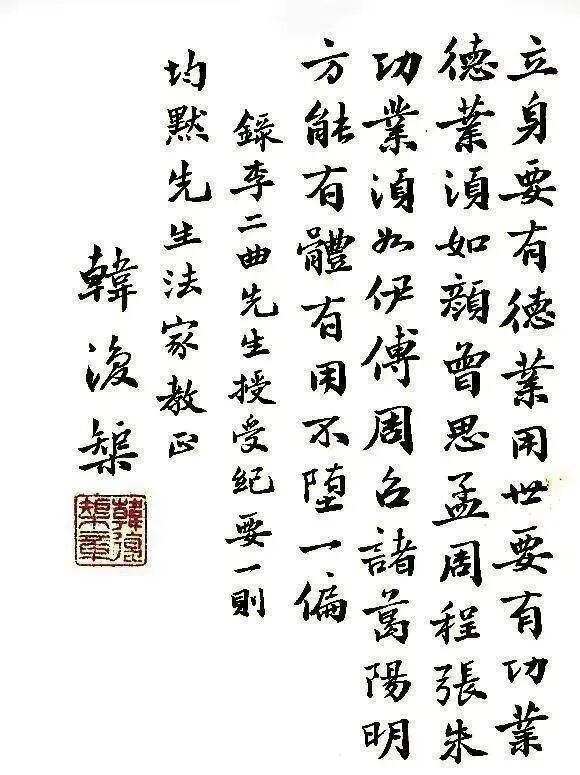 立身要有德業用世要有功業
德業須如顏曾思孟周程張朱
功業須如伊傅周召諸葛陽明
方能有體有用不墮一偏
錄李二曲先生授受紀要一則
均默先生法家教正
韓復榘
韓復榘章